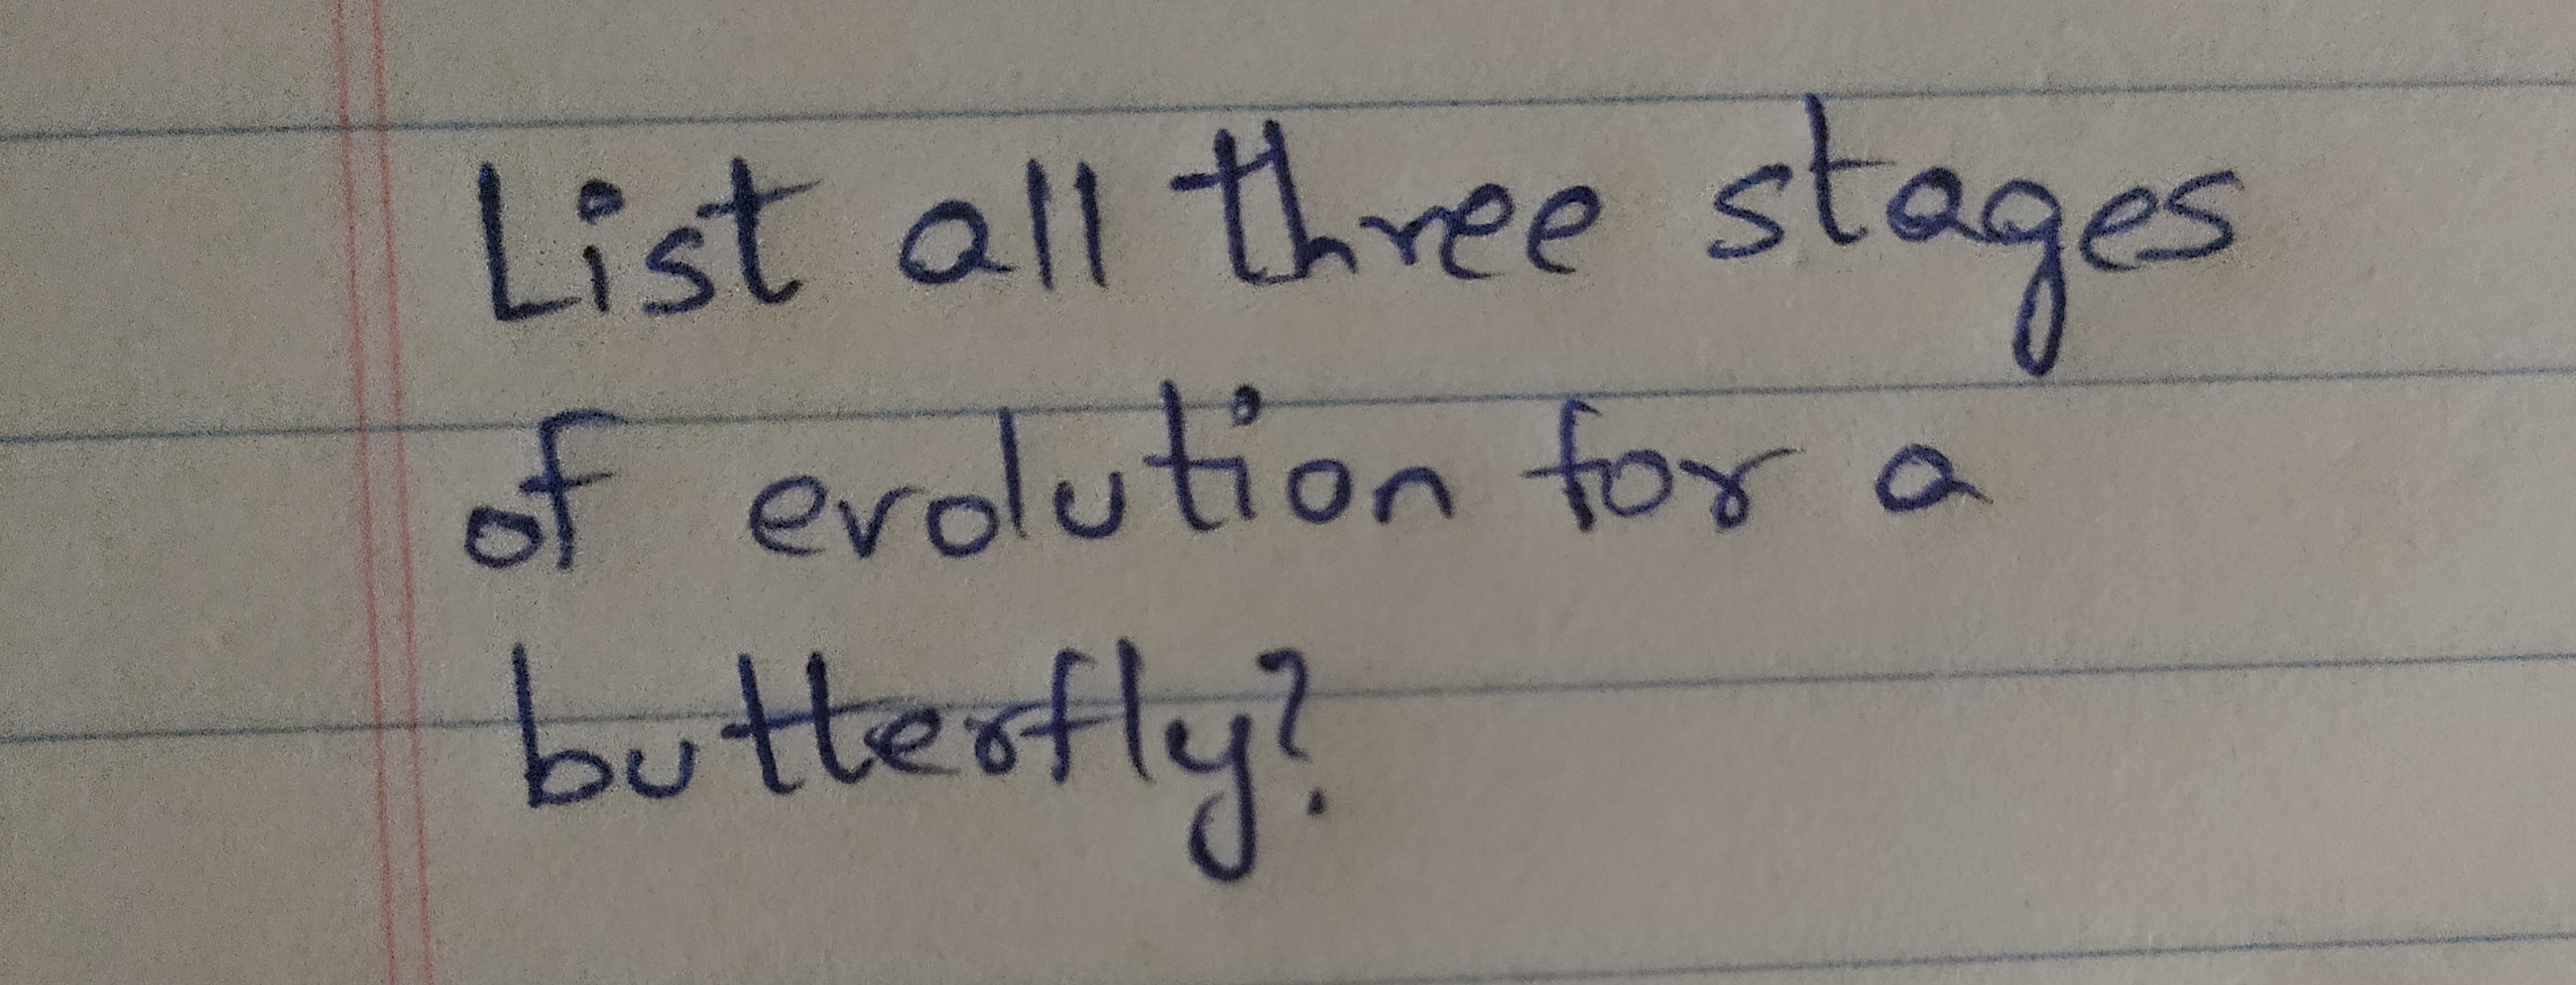 List all three stages
of evolution for a
butterfly?